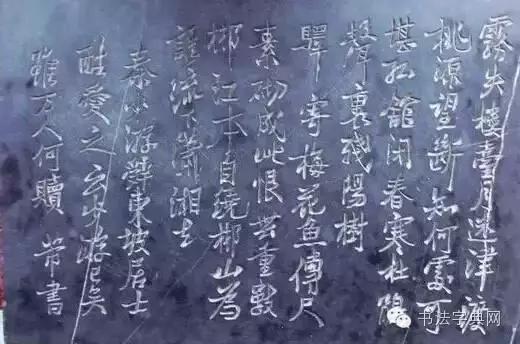 霧失樓臺月迷津渡
桃源望斷知何處可
堪孤館閉春寒杜鵑
聲裏殘陽樹
驛寄梅花魚傳尺
素砌成此恨無重數
郴江本自繞郴山為
誰流下瀟湘去
秦少游辭東坡居士
酷愛之云少游已矣
雖万人何贖 芾書
书法字典网